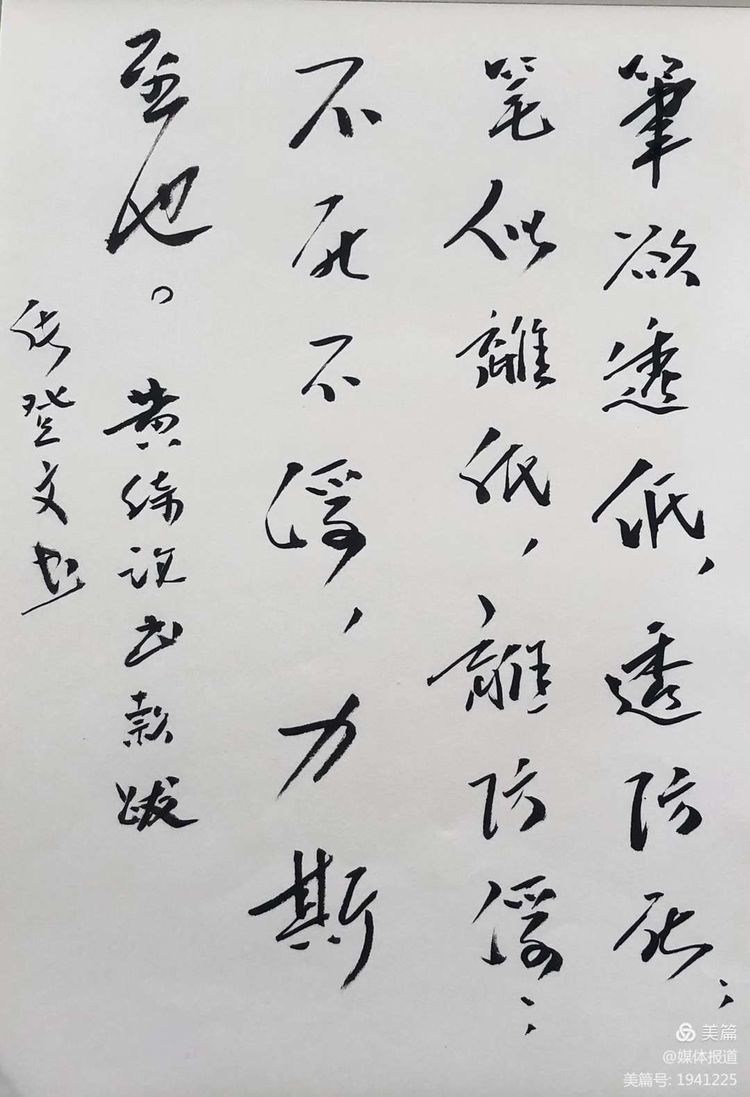 筆欲透纸，透防死；
笔似離纸，離防浮；
不死不浮，力斯
至也。黄绮说书款跋
登文书
美篇
@媒体报道
美篇号: 1941225